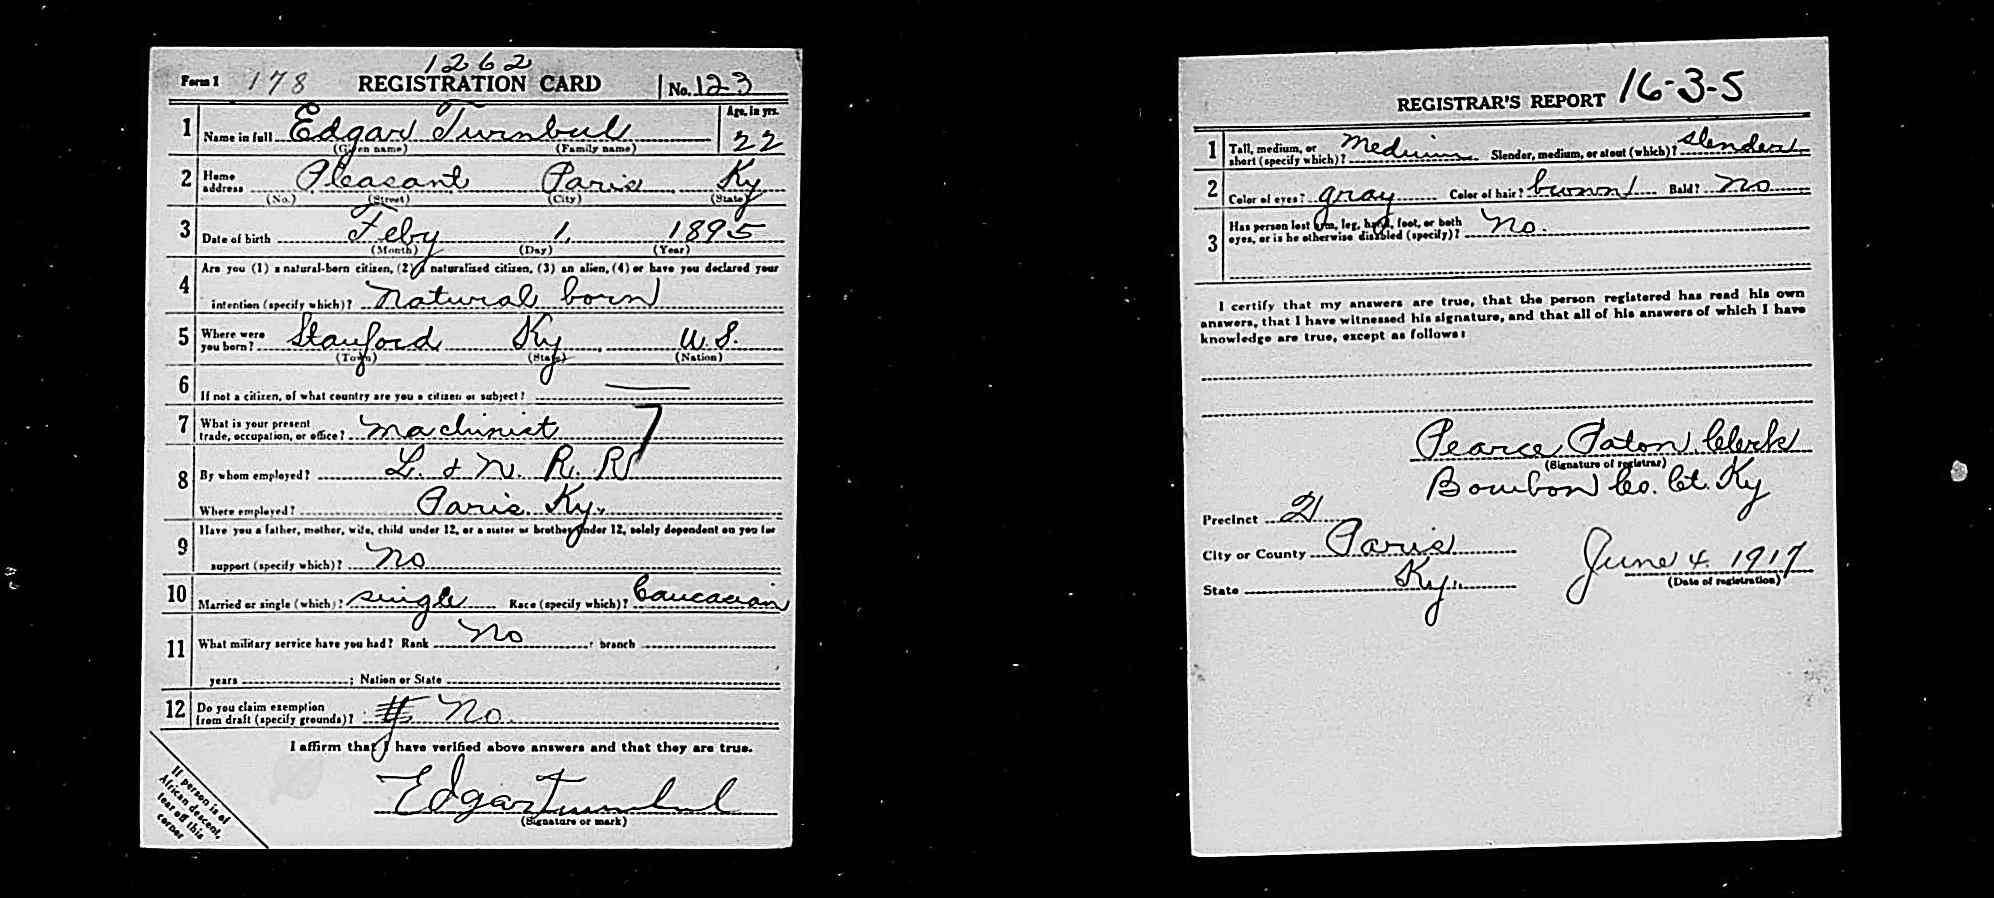 1262
Form 1 178 REGISTRATION CARD No. 123
1 Name in full Edgar Turnbul Age, in yrs. 22
(Given name) (Family name)
2 Home address Pleasant Paris Ky
(No.) (Street) (City) (State)
3 Date of birth Feby 1, 1895
(Month) (Day) (Year)
4 Are you (1) a natural-born citizen, (2) a naturalized citizen, (3) an alien, (4) or have you declared your
intention (specify which)? Natural born
5 Where were you born? Stanford Ky, U.S.
(Town) (State) (Nation)
6 If not a citizen, of what country are you a citizen or subject? —
7 What is your present trade, occupation, or office? Machinist 7
8 By whom employed? L. & N. R. R
Where employed? Paris. Ky.
9 Have you a father, mother, wife, child under 12, or a sister or brother under 12, solely dependent on you for
support (specify which)? No
10 Married or single (which)? single Race (specify which)? Caucasian
11 What military service have you had? Rank No ; branch
years ; Nation or State
12 Do you claim exemption from draft (specify grounds)? No.
I affirm that I have verified above answers and that they are true.
Edgar Turnbul
(Signature or mark)
If person is of
African descent,
tear off this
corner
REGISTRAR'S REPORT 16-3-5
1 Tall, medium, or short (specify which)? Medium Slender, medium, or stout (which)? slender
2 Color of eyes? gray Color of hair? brown Bald? No
3 Has person lost arm, leg, hand, foot, or both
eyes, or is he otherwise disabled (specify)? No.
I certify that my answers are true, that the person registered has read his own
answers, that I have witnessed his signature, and that all of his answers of which I have
knowledge are true, except as follows:
Pearce Paton, Clerk
(Signature of registrar)
Bourbon Co. Ct. Ky
Precinct 21
City or County Paris
State Ky.
June 4. 1917
(Date of registration)